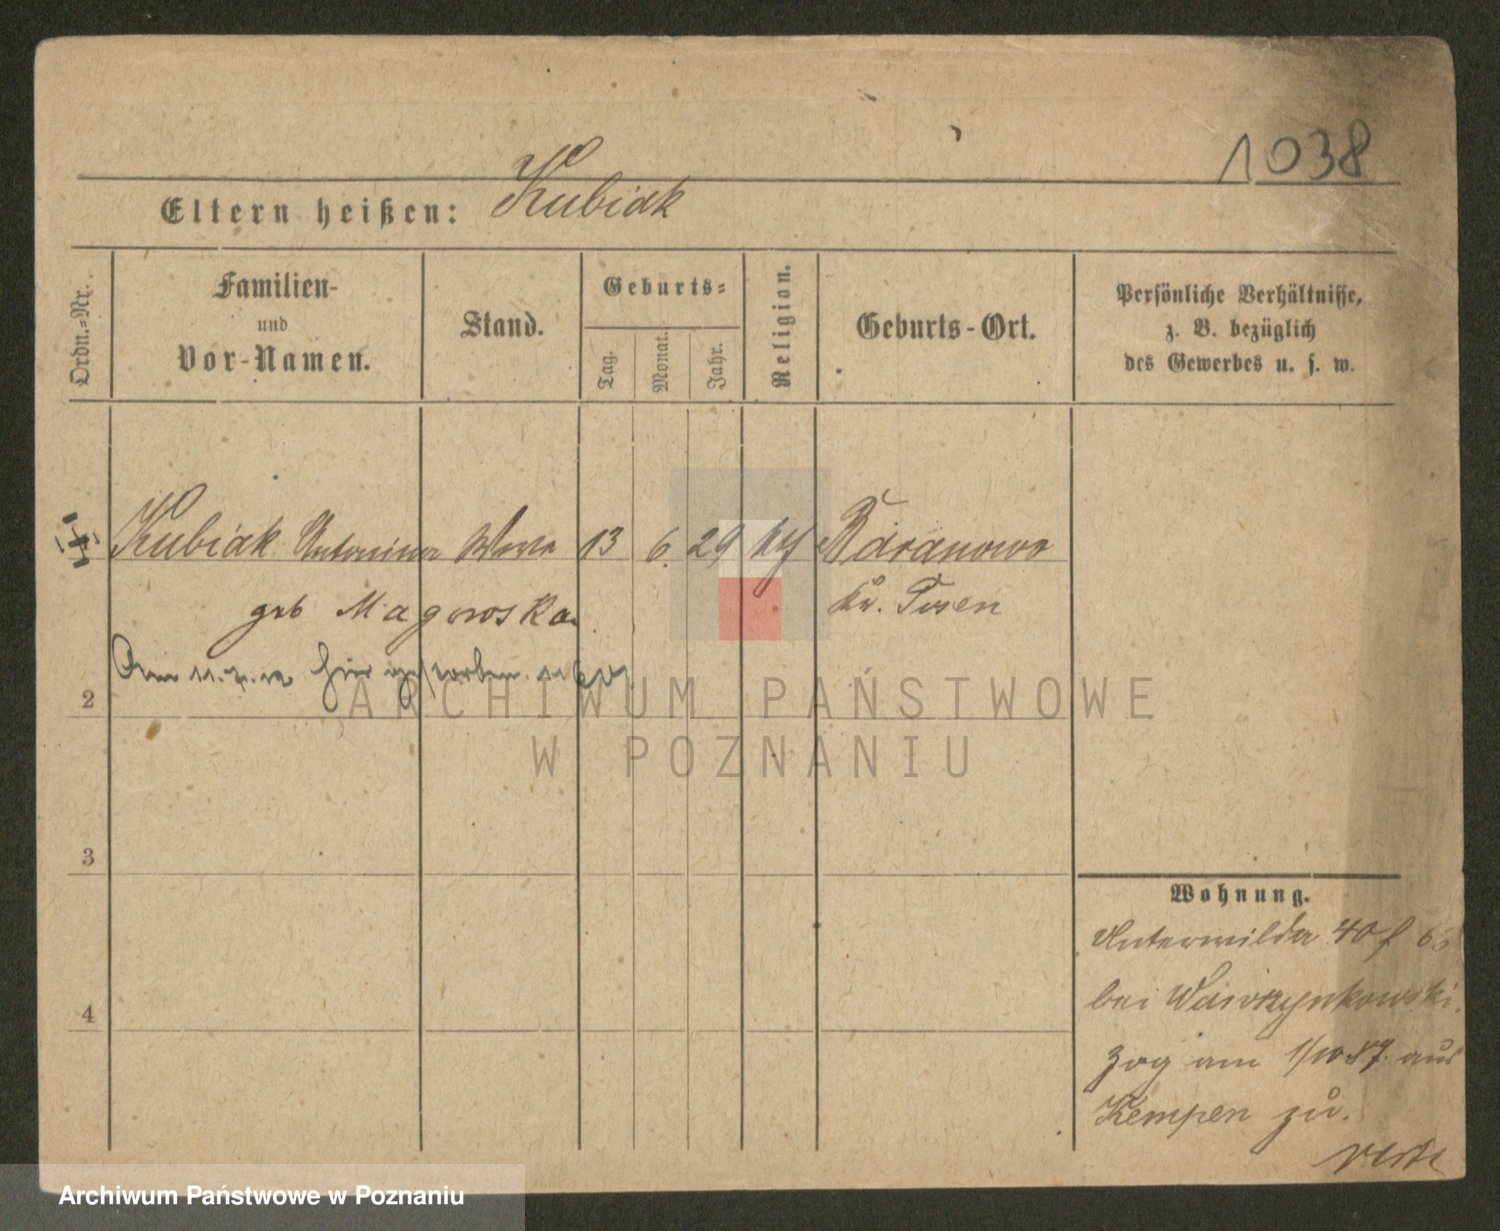 1038
Eltern heißen: Kubiak
Ordn.-Nr.
Familien-
und
Vor-Namen.
Stand.
Geburts-
Tag.
Monat.
Jahr.
Religion.
Geburts-Ort.
Persönliche Verhältnisse,
z. B. bezüglich
des Gewerbes u. s. w.
Kubiak Antonina Wwe 13 6. 29 Baranowo
geb Magoroska Kr. Posen
Am hier gestorben.
2
3
4
Wohnung.
Unterwilda 40
bei Wawrzynkowski.
Zog am 1/10 87. aus
Kempen zu.
verte
ARCHIWUM PAŃSTWOWE
W POZNANIU
Archiwum Państwowe w Poznaniu